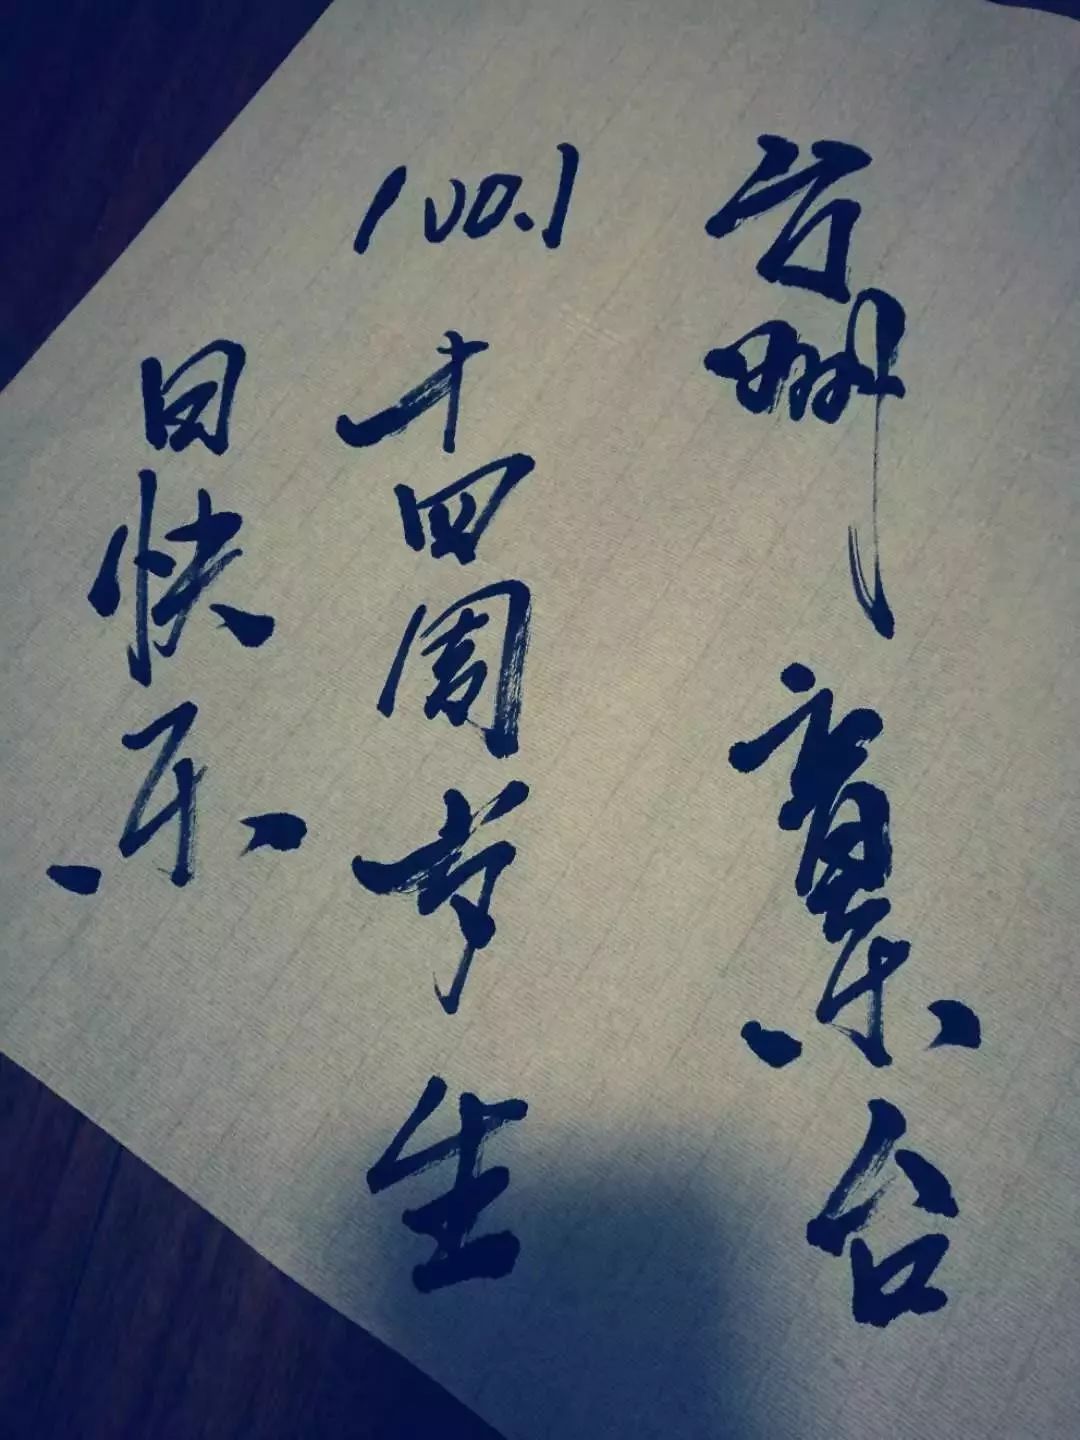 州音乐台
100.1
十四周岁生
日快乐